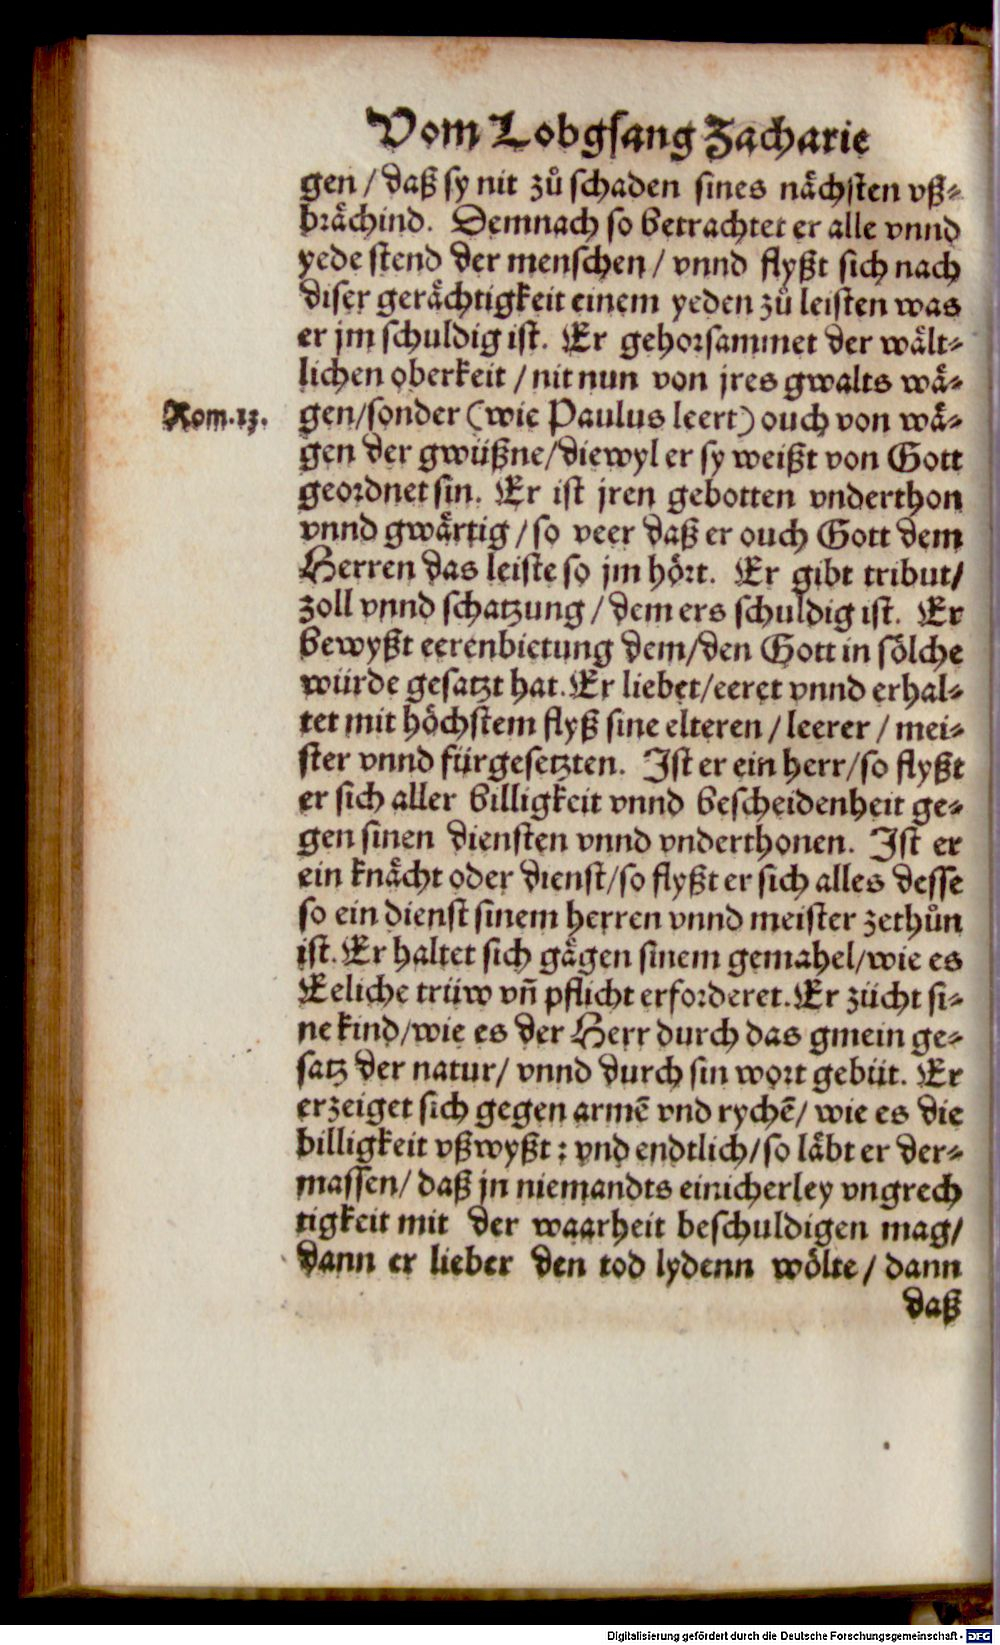 Vom Lobgsang Zacharie
gen / daß sy nit zů schaden sines nächsten vß-
brächind. Demnach so betrachtet er alle vnnd
yede stend der menschen / vnnd flyßt sich nach
diser gerächtigkeit einem yeden zů leisten was
er jm schuldig ist. Er gehorsammet der wält-
lichen oberkeit / nit nun von jres gwalts wä-
Rom. 13.
gen/sonder (wie Paulus leert) ouch von wä-
gen der gwüßne/diewyl er sy weißt von Gott
geordnet sin. Er ist jren gebotten vnderthon
vnnd gwärtig / so veer daß er ouch Gott dem
Herren das leiste so jm hört. Er gibt tribut/
zoll vnnd schatzung / dem ers schuldig ist. Er
bewyßt eerenbietung dem/den Gott in sölche
würde gesatzt hat. Er liebet/eeret vnnd erhal-
tet mit höchstem flyß sine elteren / leerer / mei-
ster vnnd fürgesetzten. Ist er ein herr/so flyßt
er sich aller billigkeit vnnd bescheidenheit ge-
gen sinen diensten vnnd vnderthonen. Ist er
ein knächt oder dienst/so flyßt er sich alles desse
so ein dienst sinem herren vnnd meister zethůn
ist. Er haltet sich gägen sinem gemahel/wie es
Eeliche trüw vñ pflicht erforderet. Er zücht si-
ne kind/wie es der Herr durch das gmein ge-
satz der natur/ vnnd durch sin wort gebüt. Er
erzeiget sich gegen armē vnd rychē/ wie es die
billigkeit vßwyßt : vnd endtlich/so läbt er der-
massen/ daß jn niemandts einicherley vngrech
tigkeit mit der waarheit beschuldigen mag/
dann er lieber den tod lydenn wölte / dann
daß
Digitalisierung gefördert durch die Deutsche Forschungsgemeinschaft - DFG